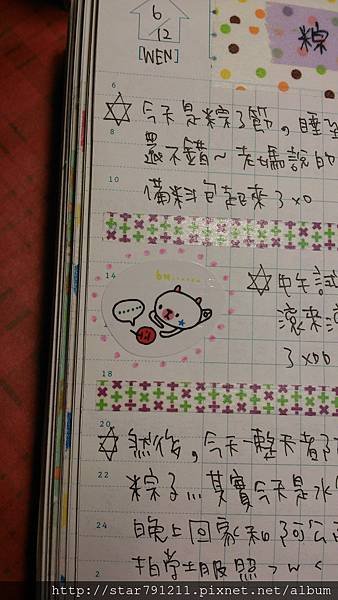 6
12
[WEN]
粽
6
☆今天是粽子節,睡到
8
還不錯~老媽說的
10
備料包起來了xD
14
6n......
☆中午試
滾來滾
了xDD
18
20
☆然後,今天一整天都
22
粽子...其實今天是水
24
晚上回家和阿公
2
拍學士服照>w<
http://star791211.pixnet.net/album